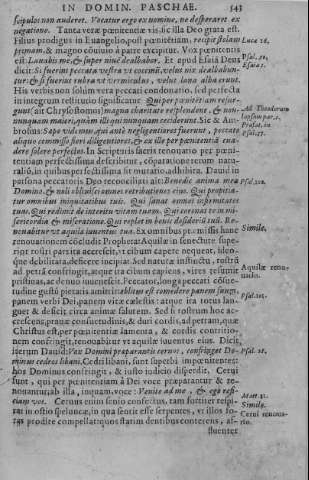 IN DOMIN. PASCHAE. 543
scipulos non auderet. Vocatur ergo ex nomine, ne desperaret ex
negatione. Tanta verò pœnitentiæ vis: sic illa Deo grata est.
Filius prodigus in Euangelio, post pœnitentiam, recipit stolam Luca 15.
primam, & magno cōuiuio à patre excipitur. Vox pœnitentis
est: Lauabis me, & super niuē dealbabor. Et apud Esaiā Deus Psal. 50.
dicit: Si fuerint peccata vestra vt coccinū, velut nix dealbabun- Esaiæ 1.
tur: & si fuerint rubra vt vermiculus, velut lana alba erunt.
His verbis non solùm vera peccati condonatio, sed perfecta
in integrum restitutio significatur. Qui per pœnitētiam resur-
gunt (ait Chrysostomus) magna charitate resplendent, & non- Ad Theodorum
nunquam maiori, quàm illi qui nunquam ceciderunt. Sic & Am- lapsum par. 1.
brosius: Sape vidimus, qui antè negligentiores fuerunt, peccato
aliquo commisso fieri diligentiores, & ex illis per pœnitentiā eua-
dere solere perfectos. In Scripturis sacris renouatio per pœni-
tentiam perfectissima describitur, cōparatione rerum natu-
raliū, in quibus perfectissima sit mutatio, adhibita. Dauid in
persona peccatoris Deo reconciliati ait: Benedic anima mea Psal. 102.
Domino, & noli obliuisci omnes retributiones eius. Qui propitia-
tur omnibus iniquitatibus tuis. Qui sanat omnes infirmitates
tuas. Qui redimit de interitu vitam tuam. Qui coronat te in mi-
sericordia & miserationibus. Qui replet in bonis desideriū tuū. Re-
nouabitur vt aquilæ iuuentus tua. Ex omnibus præmissis hanc Simile.
renouationem cōcludit Propheta: Aquilæ in senectute supe-
rior rostri pars ita accrescit, vt cibum capere nequeat, iden-
que debilitari, & deficere incipiat. Sed naturæ instinctu, rostrū
ad petrā confringit, atque ita cibum capiens, vires resumit Aquilæ reno-
pristinas, ac denuo iuuenescit. Peccator, longa peccati cōsue- uatio.
tudine gustū pietatis amittit: oblitus est comedere panem suum, Psal. 101.
panem verbi Dei, panem vitæ cælestis: atque ita totus lan-
guet & deficit circa animæ salutem. Sed si rostrum hoc ac-
crescens, prauæ consuetudinis, & duri cordis, ad petram, quæ
Christus est, per pœnitentiæ lamenta, & cordis contritio-
nem confringit, renouabitur vt aquilæ iuuentus eius. Dicit
iterum Dauid: Vox Domini præparantis ceruos, confringet Do- Psal. 28.
minus cedros libani. Cedri libani, sunt superbi impœnitentes:
hos Dominus confringit, & iusto iudicio disperdit. Cerui
sunt, qui per pœnitentiam à Dei voce præparantur & re-
nouantur, ab illa, inquam, voce: Venite ad me, & ego refi- Matt. 11.
ciam vos. Ceruus enim senio confectus, tam fortiter respi- Simile.
rat in ostio speluncæ, in qua sentit esse serpentes, vt illos fo- Cerui renoua-
ras prodire compellat: quos statim dentibus conterens, af- tio.
fluenter